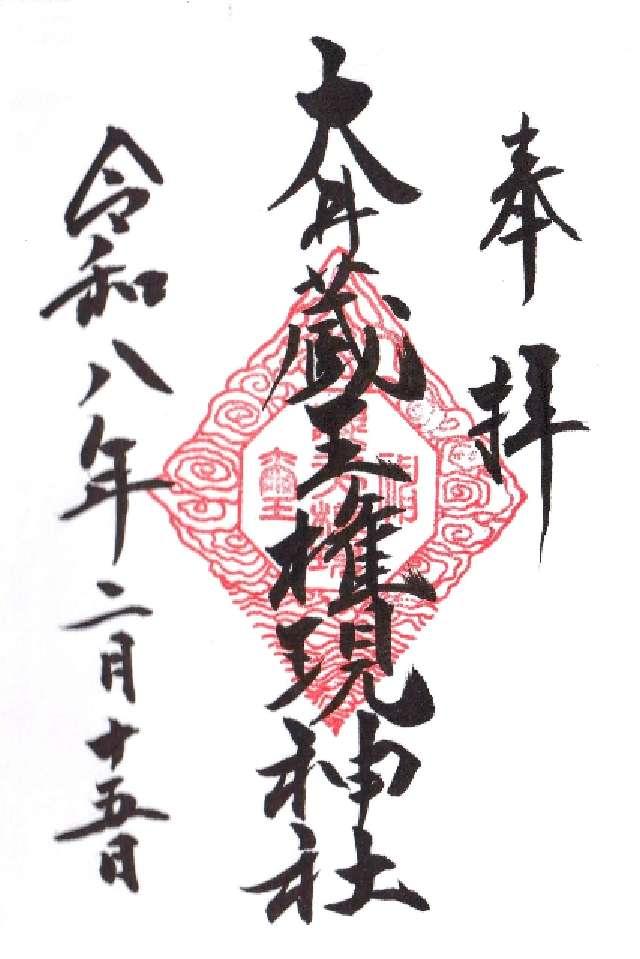 奉拝
大井蔵王権現神社
令和八年二月十五日